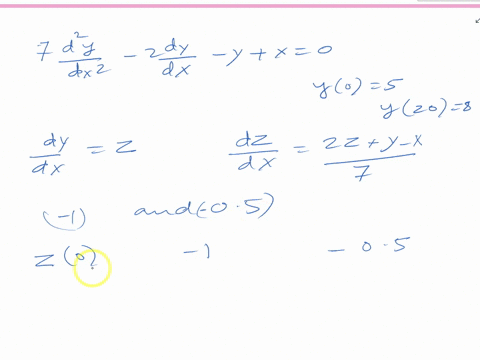 7 d²y/dx² - 2 dy/dx - y + x = 0
y(0) = 5
y(20) = 8
dy/dx = z dz/dx = 2z + y - x / 7
(-1) and (-0.5)
z(0) -1 -0.5